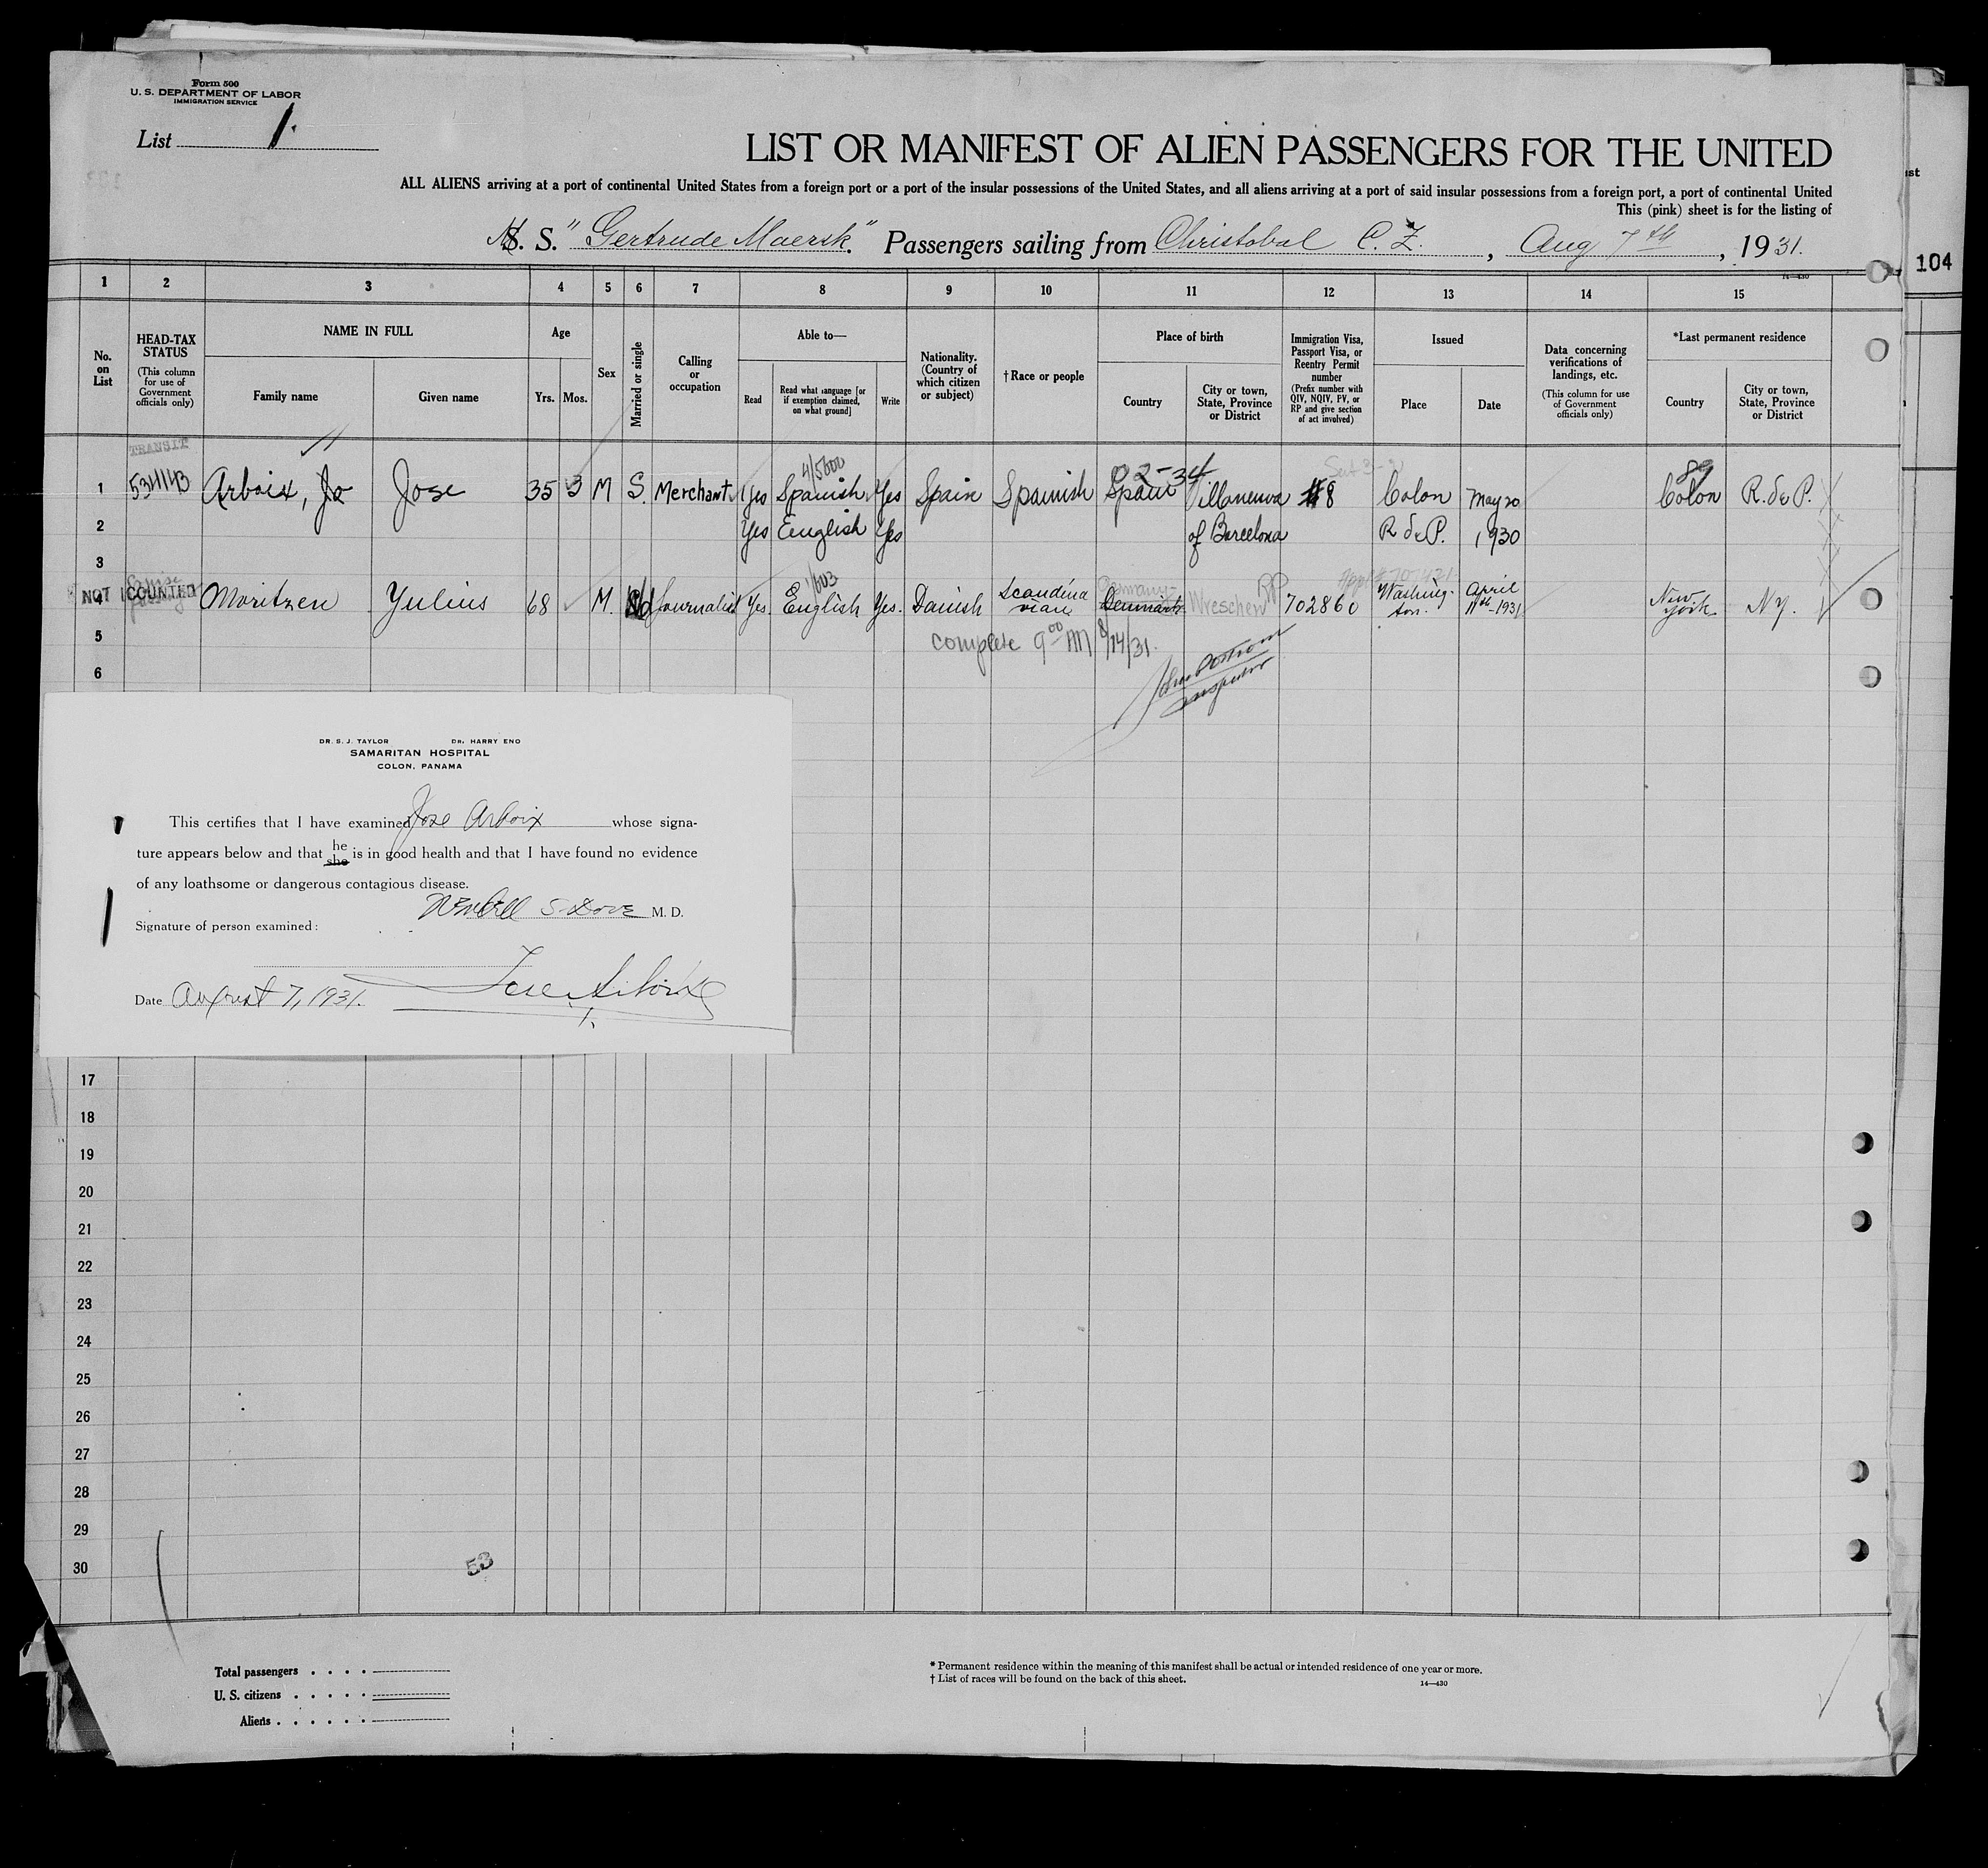 Form 500
U. S. DEPARTMENT OF LABOR
IMMIGRATION SERVICE
List 1.
LIST OR MANIFEST OF ALIEN PASSENGERS FOR THE UNITED
ALL ALIENS arriving at a port of continental United States from a foreign port or a port of the insular possessions of the United States, and all aliens arriving at a port of said insular possessions from a foreign port, a port of continental United
This (pink) sheet is for the listing of
M. S. "Gertrude Maersk." Passengers sailing from Christobal C. Z., Aug 7th, 1931.
104
14—430
1 2 3 4 5 6 7 8 9 10 11 12 13 14 15
No. on List
HEAD-TAX STATUS
(This column for use of Government officials only)
NAME IN FULL
Family name Given name
Age
Yrs. Mos.
Sex
Married or single
Calling or occupation
Able to—
Read
Read what language [or if exemption claimed, on what ground]
Write
Nationality. (Country of which citizen or subject)
†Race or people
Place of birth
Country
City or town, State, Province or District
Immigration Visa, Passport Visa, or Reentry Permit number
(Prefix number with QIV, NQIV, PV, or RP and give section of act involved)
Issued
Place Date
Data concerning verifications of landings, etc.
(This column for use of Government officials only)
*Last permanent residence
Country
City or town, State, Province or District
TRANSIT
4/5600 02-34 89
1 534143 Arboix, Jo Jose 35 3 M S. Merchant Yes Spanish Yes Spain Spanish Spain Villanueva #8 Colon May 20 Colon R. de P.
2 Yes English Yes of Barcelona R de P. 1930
3
1/603 Germany RP
NOT COUNTED
4 Moritzen Yulius 68 M. Journalist Yes English Yes. Danish Scandinavian Denmark Wreschen 702860 Washington. April 11th-1931 New York N.Y.
5 complete 9:00 M 8/14/31.
6
Inspector
DR. S. J. TAYLOR DR. HARRY ENO
SAMARITAN HOSPITAL
COLON, PANAMA
This certifies that I have examined Jose Arboix whose signa-
ture appears below and that he she is in good health and that I have found no evidence
of any loathsome or dangerous contagious disease.
M. D.
Signature of person examined:
Jose Arboix
Date August 7, 1931.
17
18
19
20
21
22
23
24
25
26
27
28
29
30
53
Total passengers
U. S. citizens
Aliens
* Permanent residence within the meaning of this manifest shall be actual or intended residence of one year or more.
† List of races will be found on the back of this sheet.
14—430